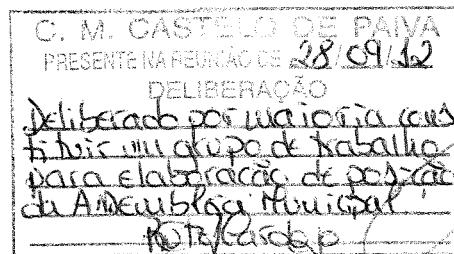 C. M. CASTELO DE PAIVA
PRESENTE NA REUNIÃO DE 28/09/12
DELIBERAÇÃO
Deliberado por maioria cons
tituir um grupo de trabalho
para elaboração de posição
da Assembleia Municipal